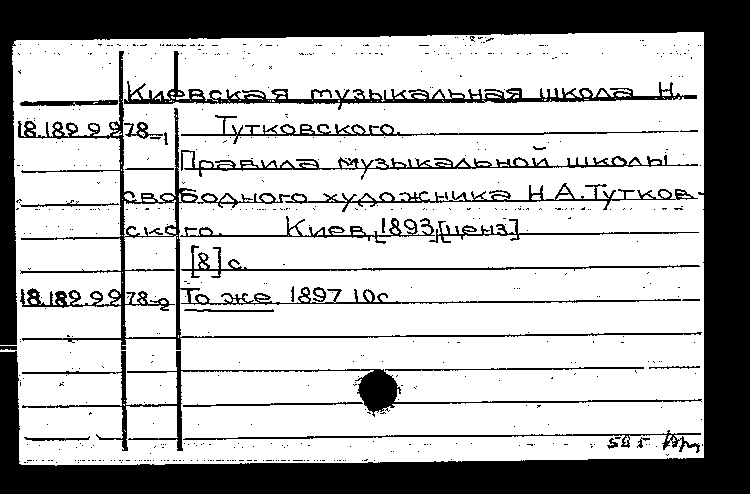 Киевская музыкальная школа Н.
18.189.9.978-1 Тутковского.
Правила музыкальной школы
свободного художника Н.А.Тутков-
ского. Киев, [1893, [ценз]
[8] с.
18.189.9.978-2 То же. 1897 10с.